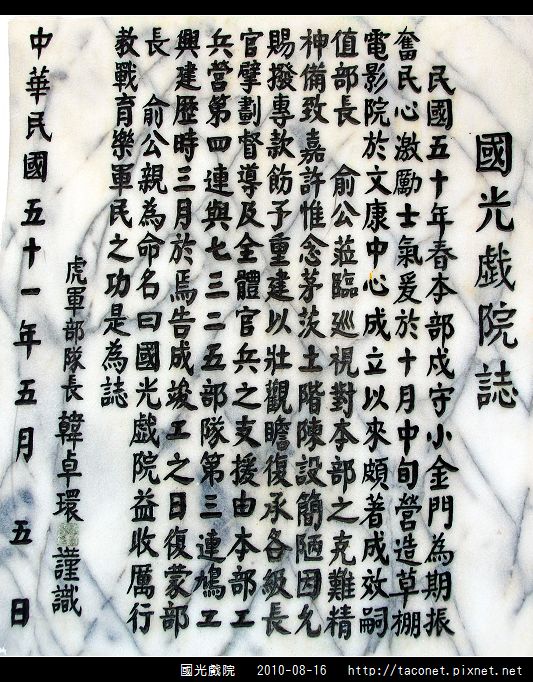 國光戯院誌
民國五十年春本部戍守小金門為期振
奮民心激勵士氣爰於十月中旬營造草棚
電影院於文康中心成立以來頗著成效嗣
值部長　俞公蒞臨巡視對本部之克難精
神備致　嘉許惟念茅茨土階陳設簡陋因允
賜撥專款飭予重建以壯觀瞻復承各級長
官擘劃督導及全體官兵之支援由本部工
兵營第四連與七三二五部隊第三連鳩工
興建歷時三月於焉告成竣工之日復蒙部
長　俞公親為命名曰國光戯院益收厲行
教戰育樂軍民之功是為誌
虎軍部隊長 韓卓環 謹識
中華民國五十一年五月　五日
國光戲院　2010-08-16　http://taconet.pixnet.net